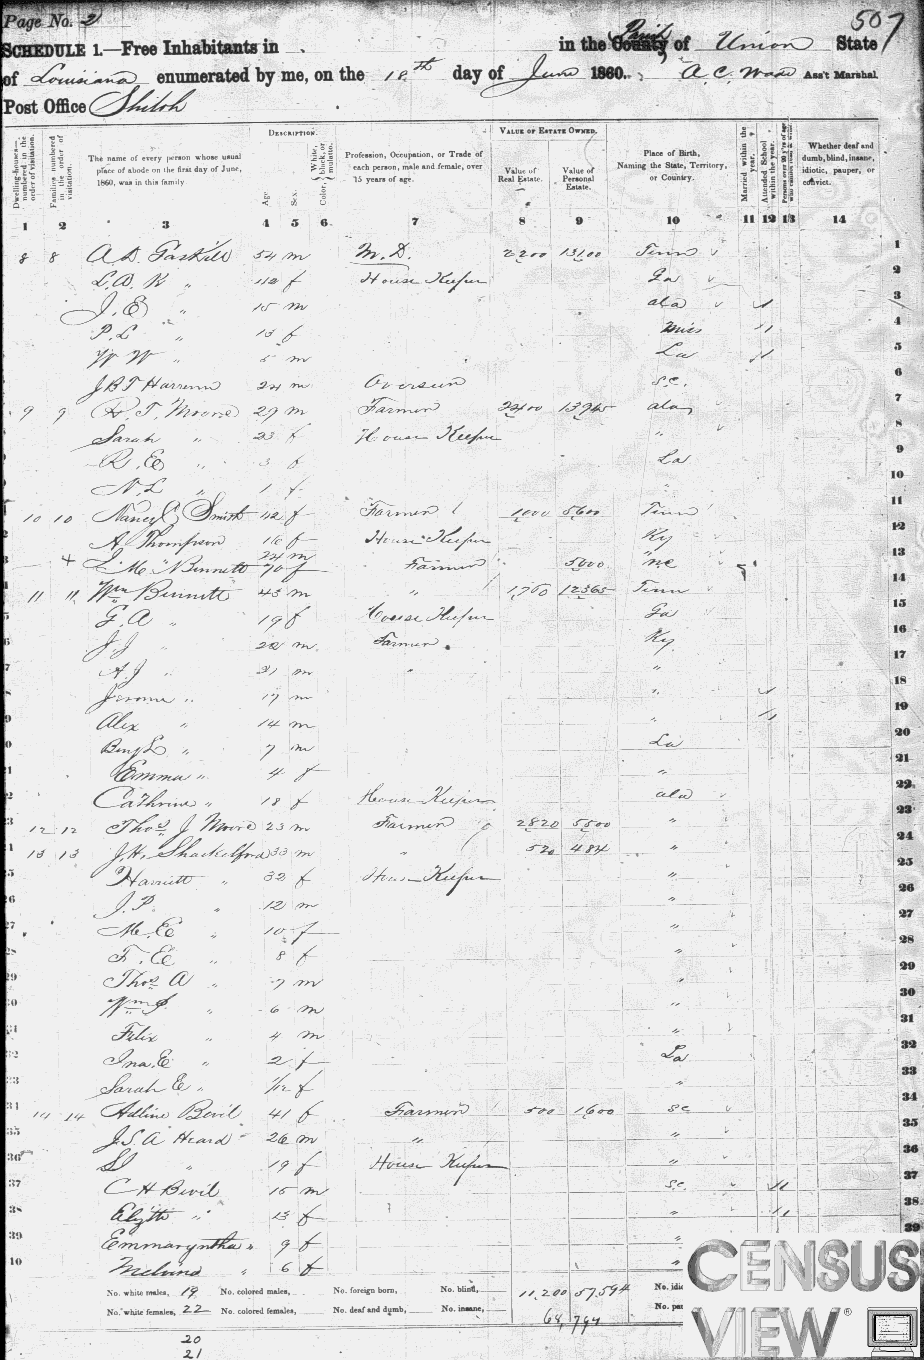 Page No. 2
507
SCHEDULE 1.—Free Inhabitants in in the County Parish of Union State
of Louisiana enumerated by me, on the 18th day of June 1860. A. C. Wade Ass't Marshal
Post Office Shiloh
DESCRIPTION. VALUE OF ESTATE OWNED.
Dwelling-houses—numbered in the order of visitation. Families numbered in the order of visitation. The name of every person whose usual place of abode on the first day of June, 1860, was in this family. Age. Sex. Color, White, black, or mulatto. Profession, Occupation, or Trade of each person, male and female, over 15 years of age. Value of Real Estate. Value of Personal Estate. Place of Birth, Naming the State, Territory, or Country. Married within the year. Attended School within the year. Whether deaf and dumb, blind, insane, idiotic, pauper, or convict.
1 2 3 4 5 6 7 8 9 10 11 12 13 14
8 8 A D Gaskill 54 m M.D. 2200 13100 Tenn 1
L. D. K " f House Keeper Ga 2
J. E " 15 m ala 3
P. L " 13 f Miss 4
W W " 5 m La 5
J B T 24 m Overseer S.C. 6
9 9 R. T. Moore 29 m Farmer 2400 13945 ala 7
Sarah " 23 f House Keeper " 8
R. E " 3 f La 9
N. L " 1 f " 10
10 10 Nancy C Smith 42 f Farmer 1000 5600 Tenn 11
A Thompson 16 f House Keeper Ky 12
24 m "
M Bennett 70 f Farmer 5000 NC 13
11 11 Wm Bennett 43 m " 1760 12365 Tenn 14
G. A " 19 f House Keeper Ga 15
J J " 22 m Farmer Ky 16
A. J " 21 m " " 17
Jerome " 17 m " 18
Alex " 14 m " 19
Benj L " 7 m La 20
Emma " 4 f " 21
Cathrine " 18 f House Keeper ala 22
12 12 Thos J Moore 23 m Farmer 2820 5500 " 23
13 13 J. H. Shackelford 33 m " 520 484 " 24
Harriett " 32 f House Keeper " 25
J. P. " 12 m " 26
M. E " 10 f " 27
F. E " 8 f " 28
Thos A " 7 m " 29
Wm S " 6 m " 30
Felix " 4 m " 31
Ina. E " 2 f La 32
Sarah E " 1/12 f " 33
14 14 Adline Bevil 41 f Farmer 500 1600 SC 34
J. S. A Heard 26 m " " 35
" 19 f House Keeper " 36
C H Bevil 15 m SC 37
" 13 f " 38
Emmaryntha " 9 f " 39
Melvina " 6 f
No. white males, 19 No. colored males, No. foreign born, No. blind, 11,200 57,594 No. idio
No. white females, 22 No. colored females, No. deaf and dumb, No. insane, No. pa
68,794
20
21
CENSUS
VIEW®